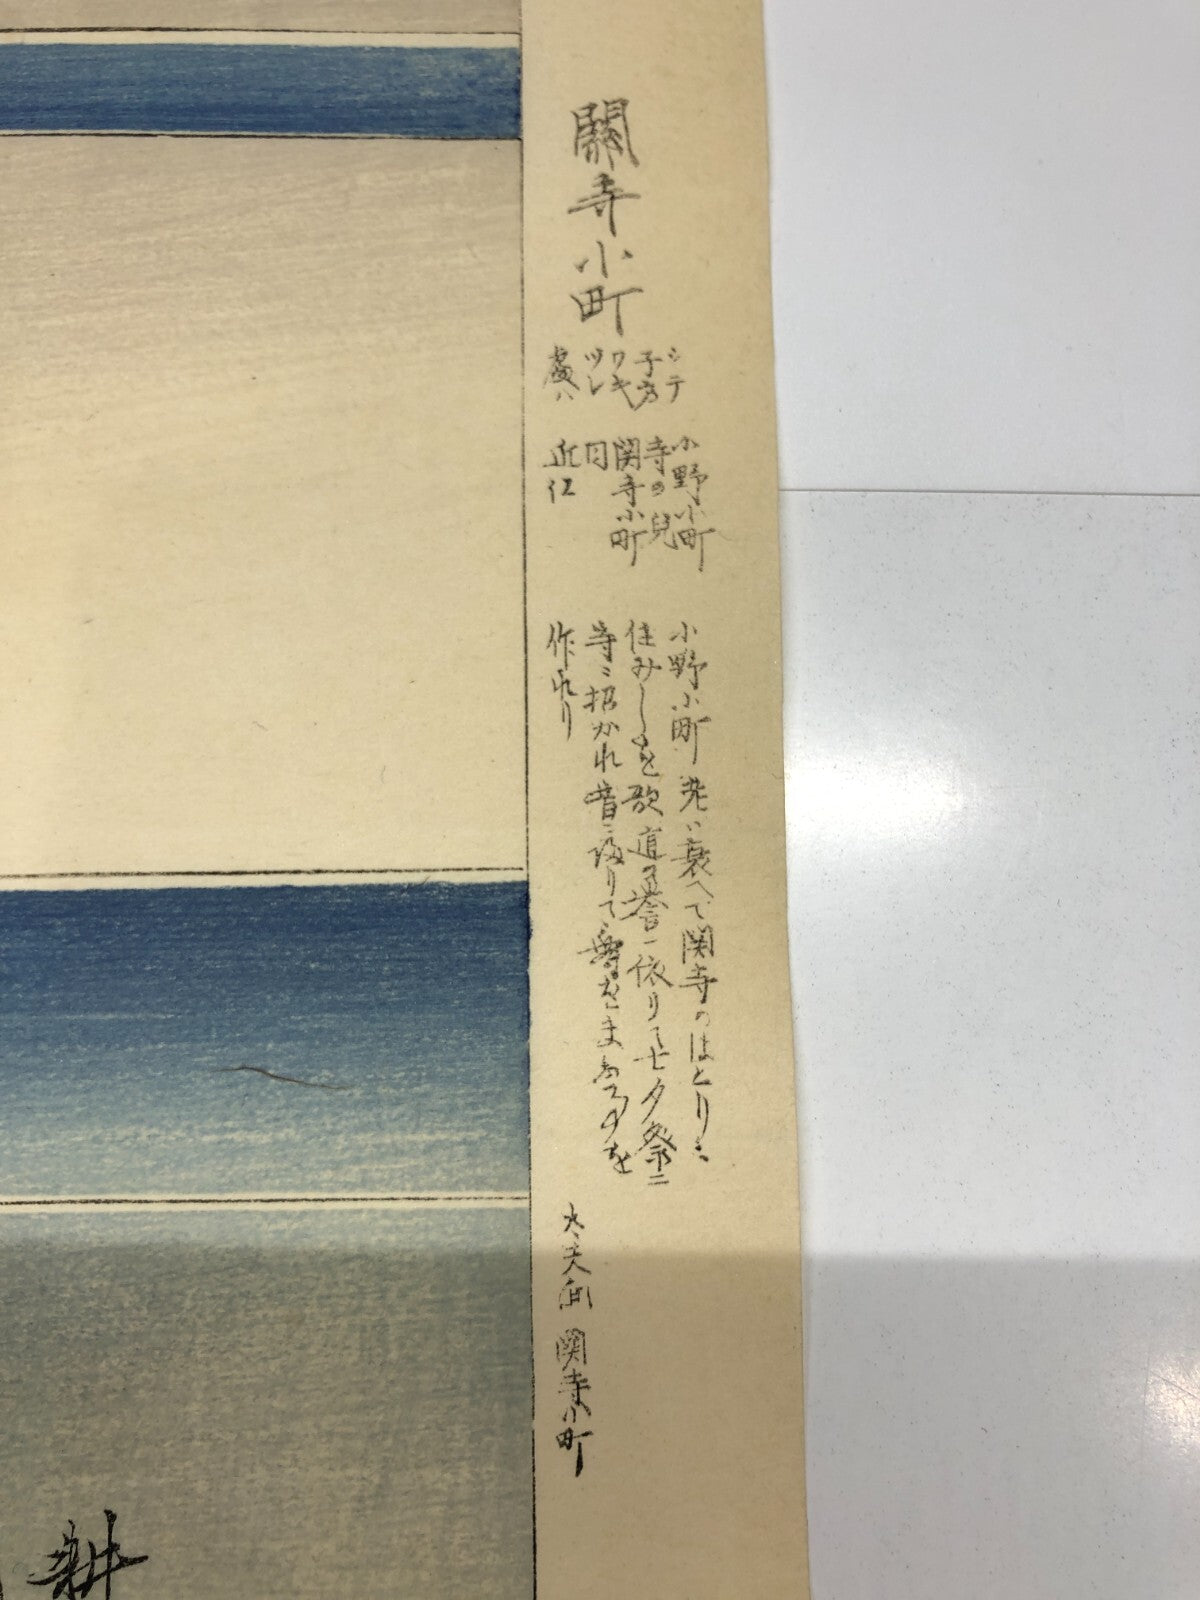 關寺小町
シテ 小野小町
子方 寺の兒
ワキ 関寺小町
ツレ 同
處ハ 近江
小野小町老い衰へて関寺のほとりに
住みしを歌道の誉に依りて七夕祭ニ
寺に招かれ昔に帰りて舞をまふ事を
作れり
大夫面 関寺小町
耕